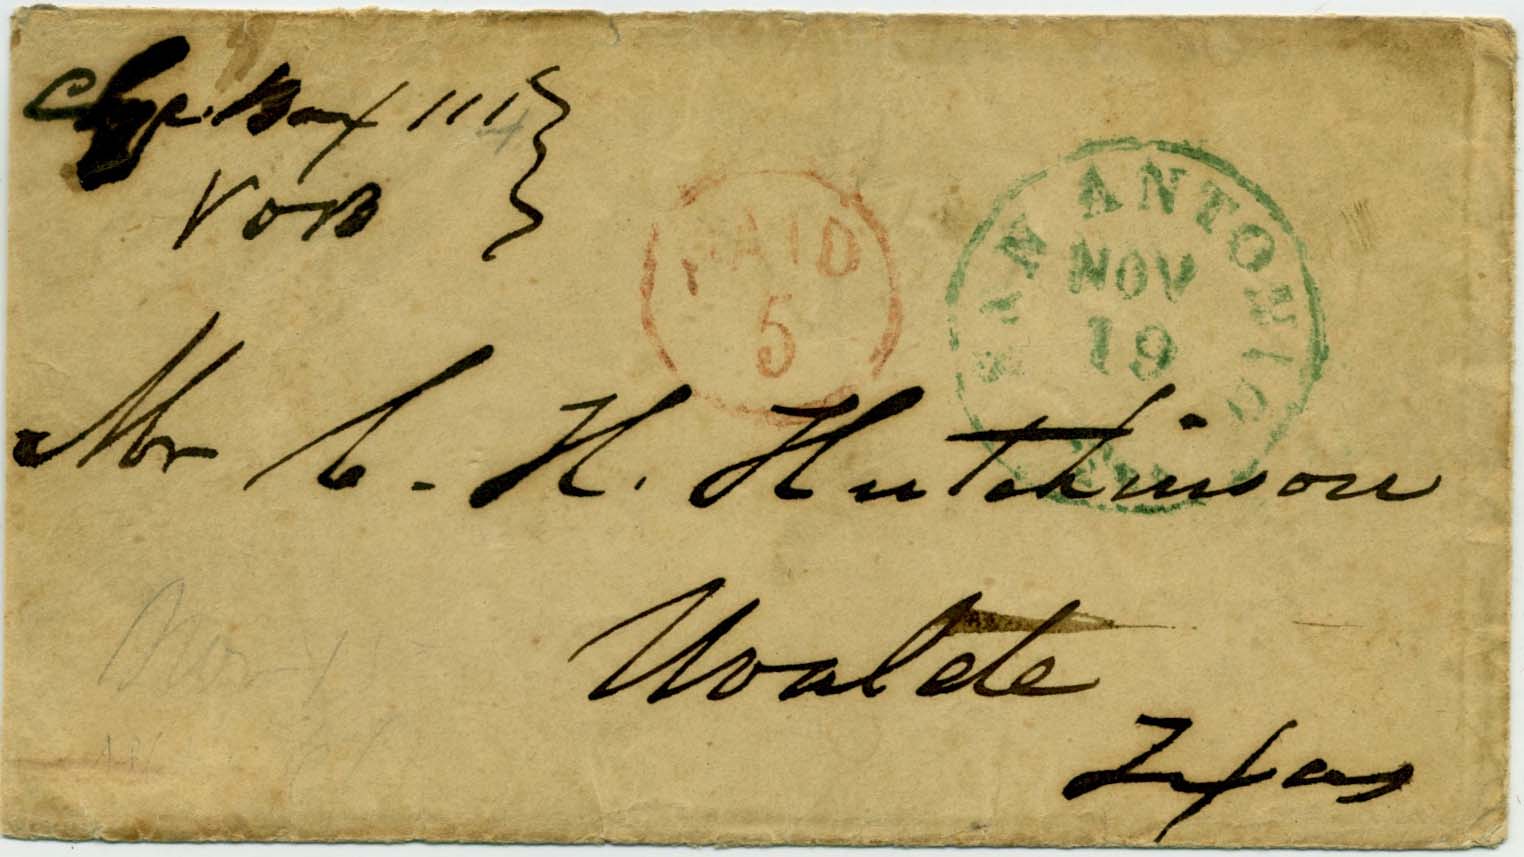 Chge. Box 111
VOB
PAID
5
SAN ANTONIO
NOV
19
Mr C. H. Hutchinson
Uvalde
Texas